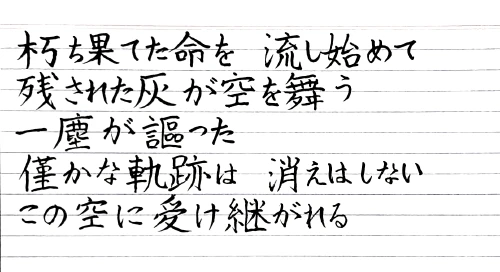 朽ち果てた命を 流し始めて
残された灰が空を舞う
一塵が謳った
僅かな軌跡は 消えはしない
この空に受け継がれる